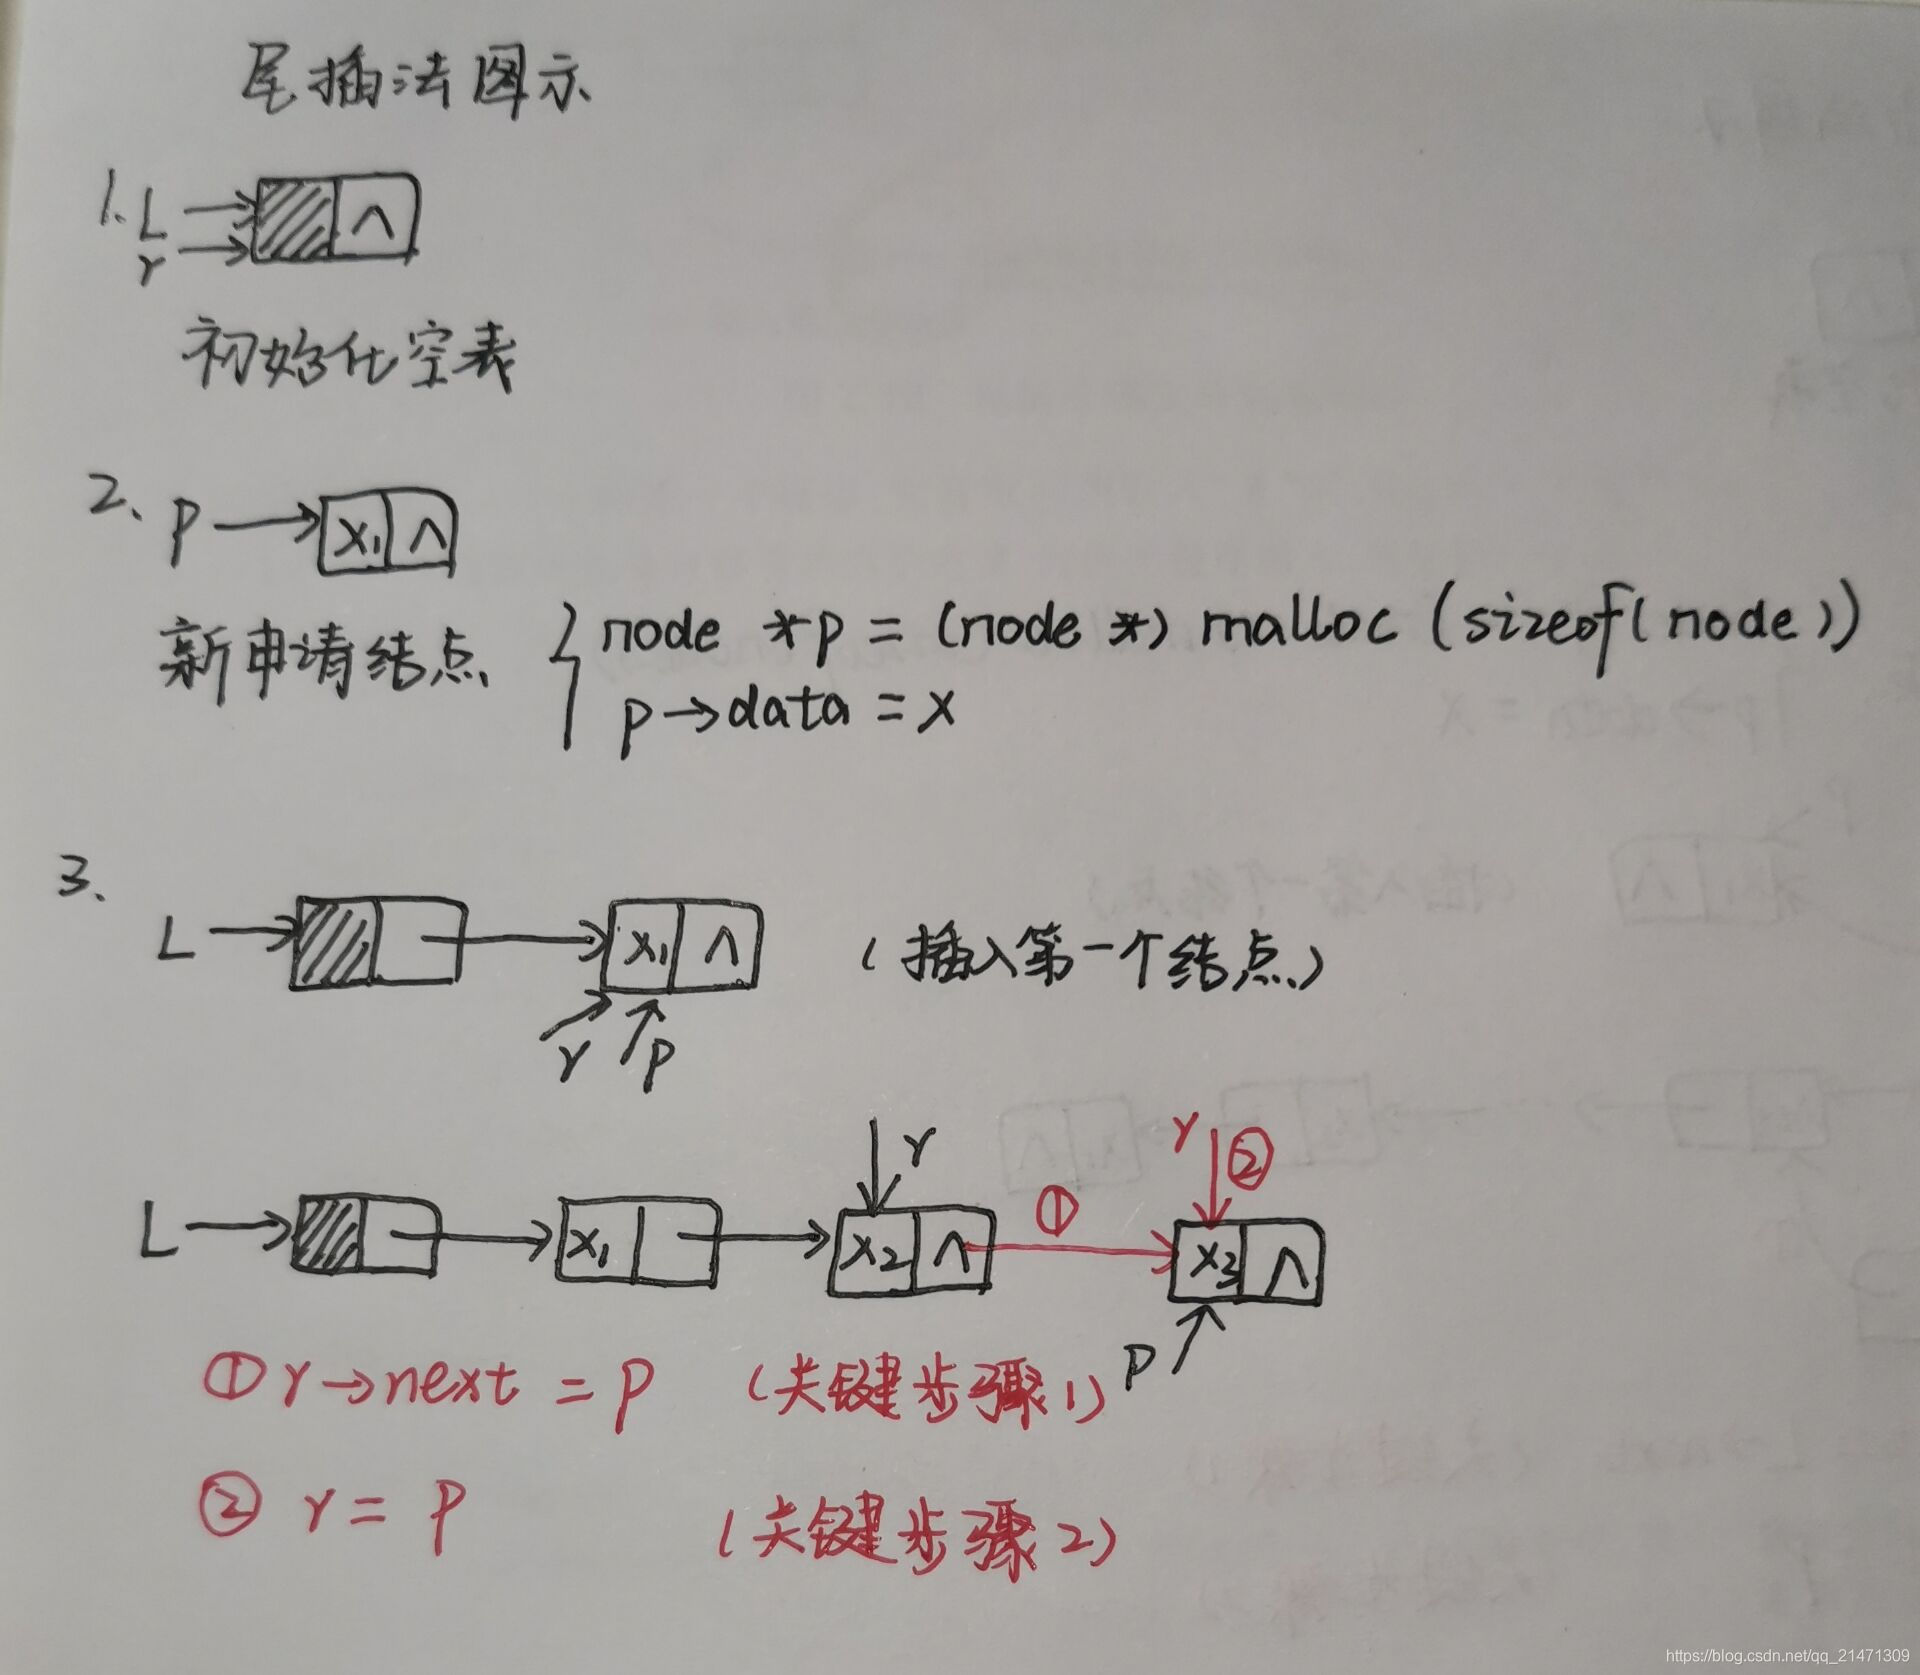 尾插法图示
1. L
r
∧
初始化空表
2、 p x₁ ∧
新申请结点 { node *p = (node *) malloc (sizeof(node))
p→data = x
3、
L x₁ ∧ (插入第一个结点)
r p
r r ②
L x₁ x₂ ∧ ① x₃ ∧
p
① r→next = p (关键步骤1)
② r = p (关键步骤2)
https://blog.csdn.net/qq_21471309